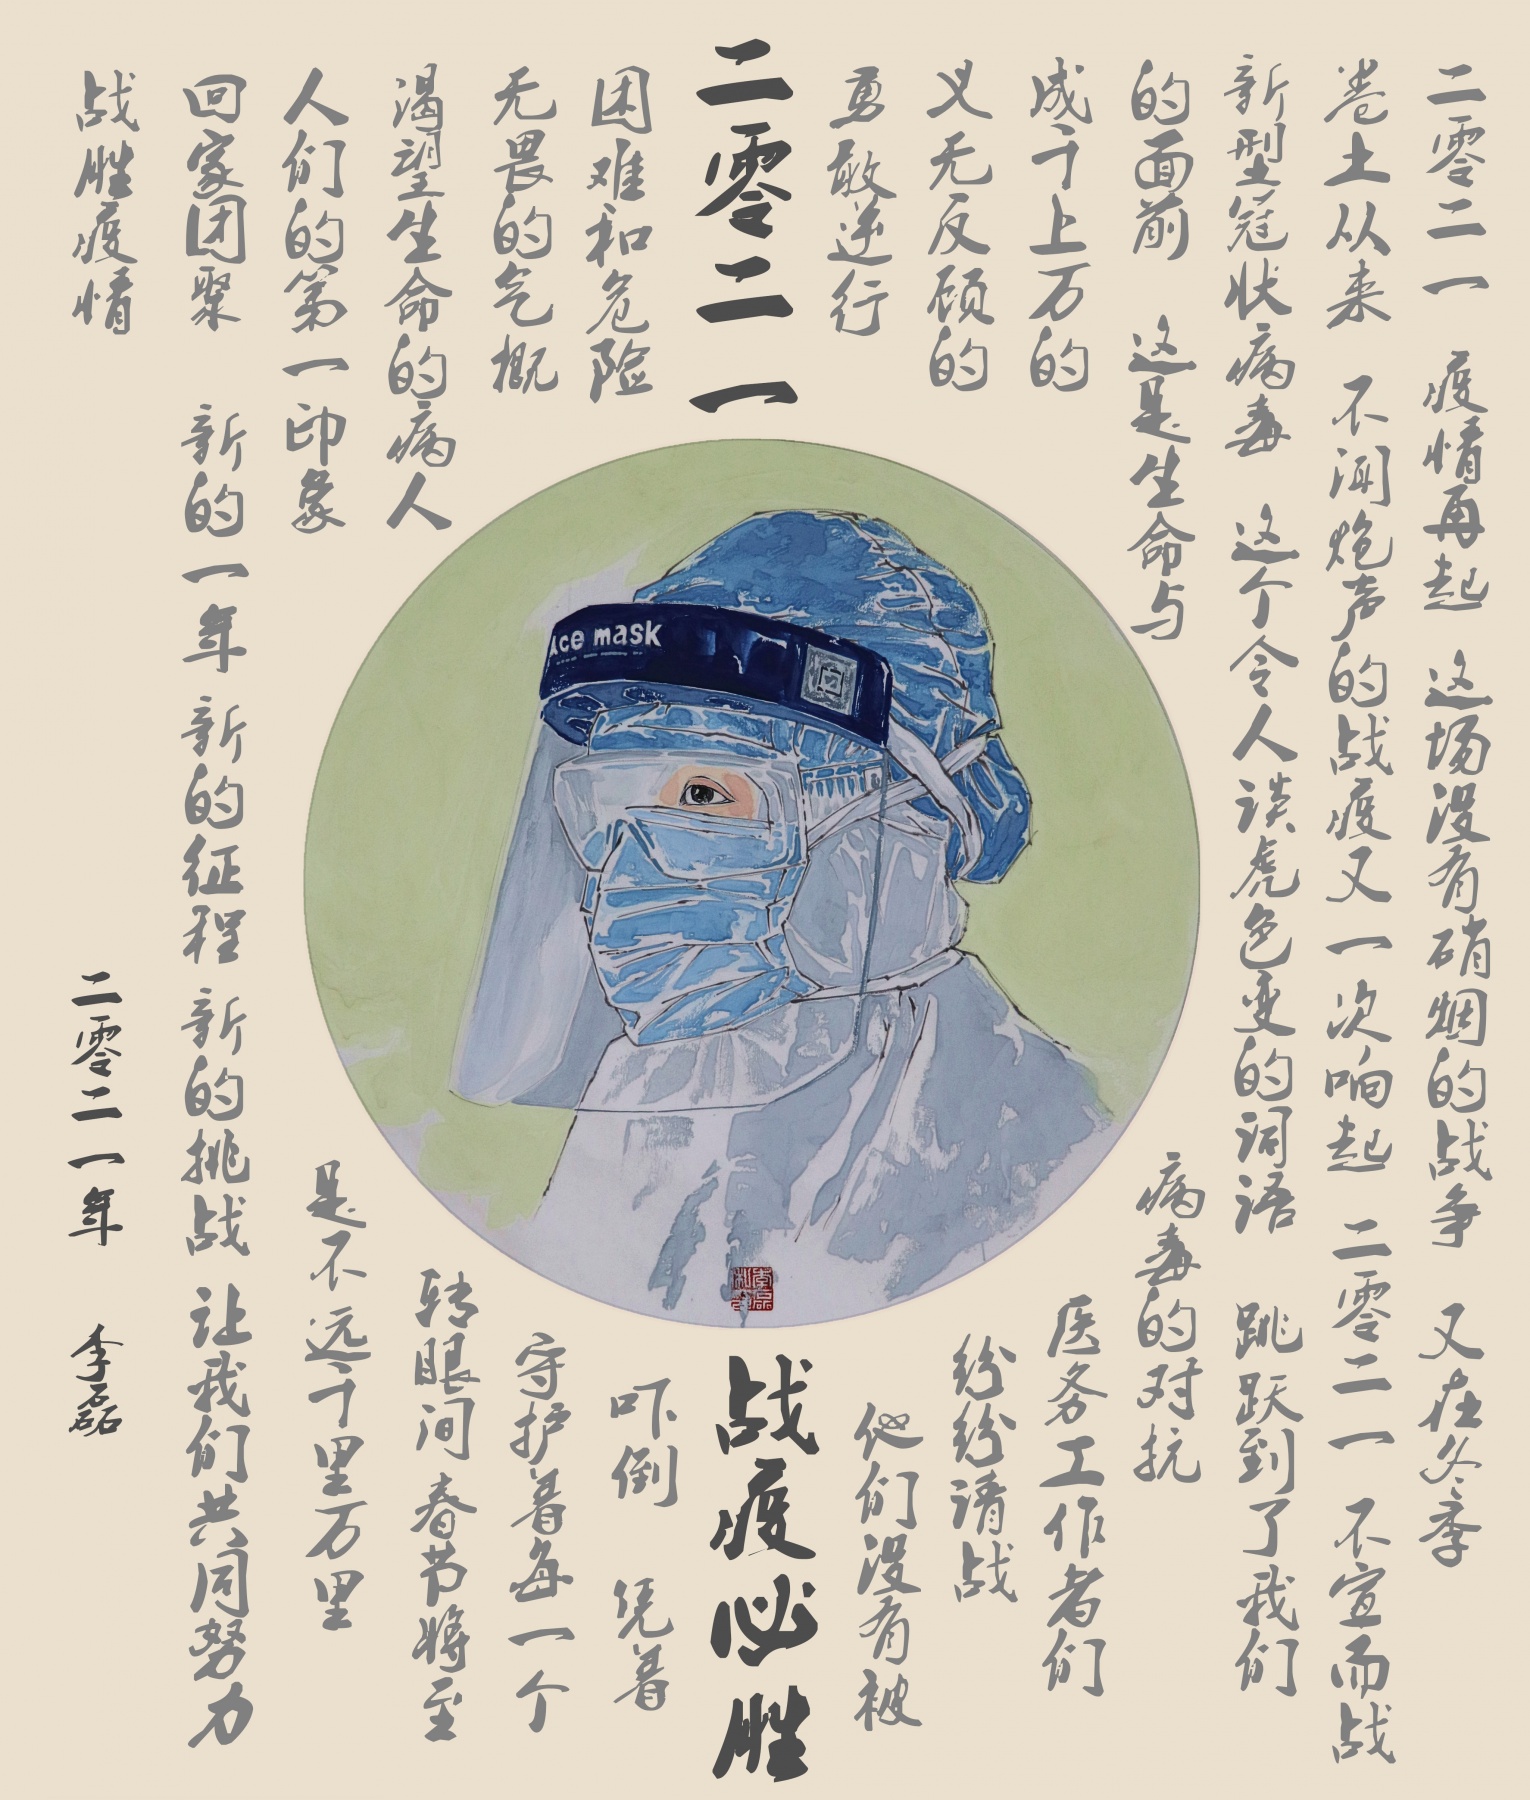 二零二一 疫情再起 这场没有硝烟的战争 又在冬季
卷土从来 不闻炮声的战疫又一次响起 二零二一 不宣而战
新型冠状病毒 这个令人谈虎色变的词语 跳跃到了我们
的面前 这是生命与 病毒的对抗
成千上万的 医务工作者们
义无反顾的 纷纷请战
勇敢逆行 他们没有被
二零二一 战疫必胜
困难和危险 吓倒 凭着
无畏的气概 守护着每一个
渴望生命的病人 转眼间春节将至
人们的第一印象 是不远千里万里
回家团聚 新的一年 新的征程 新的挑战 让我们共同努力
战胜疫情 二零二一年 李磊
Ace mask